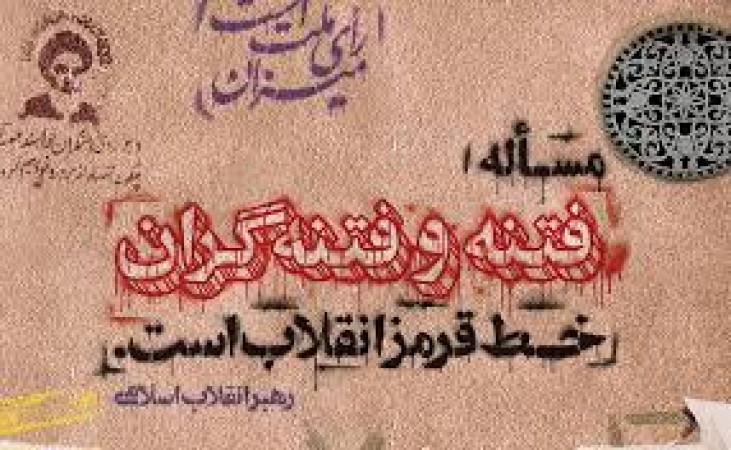 میزان
رای ملت است
مسأله
فتنه و فتنه گران
خط قرمز انقلاب است.
رهبر انقلاب اسلامی